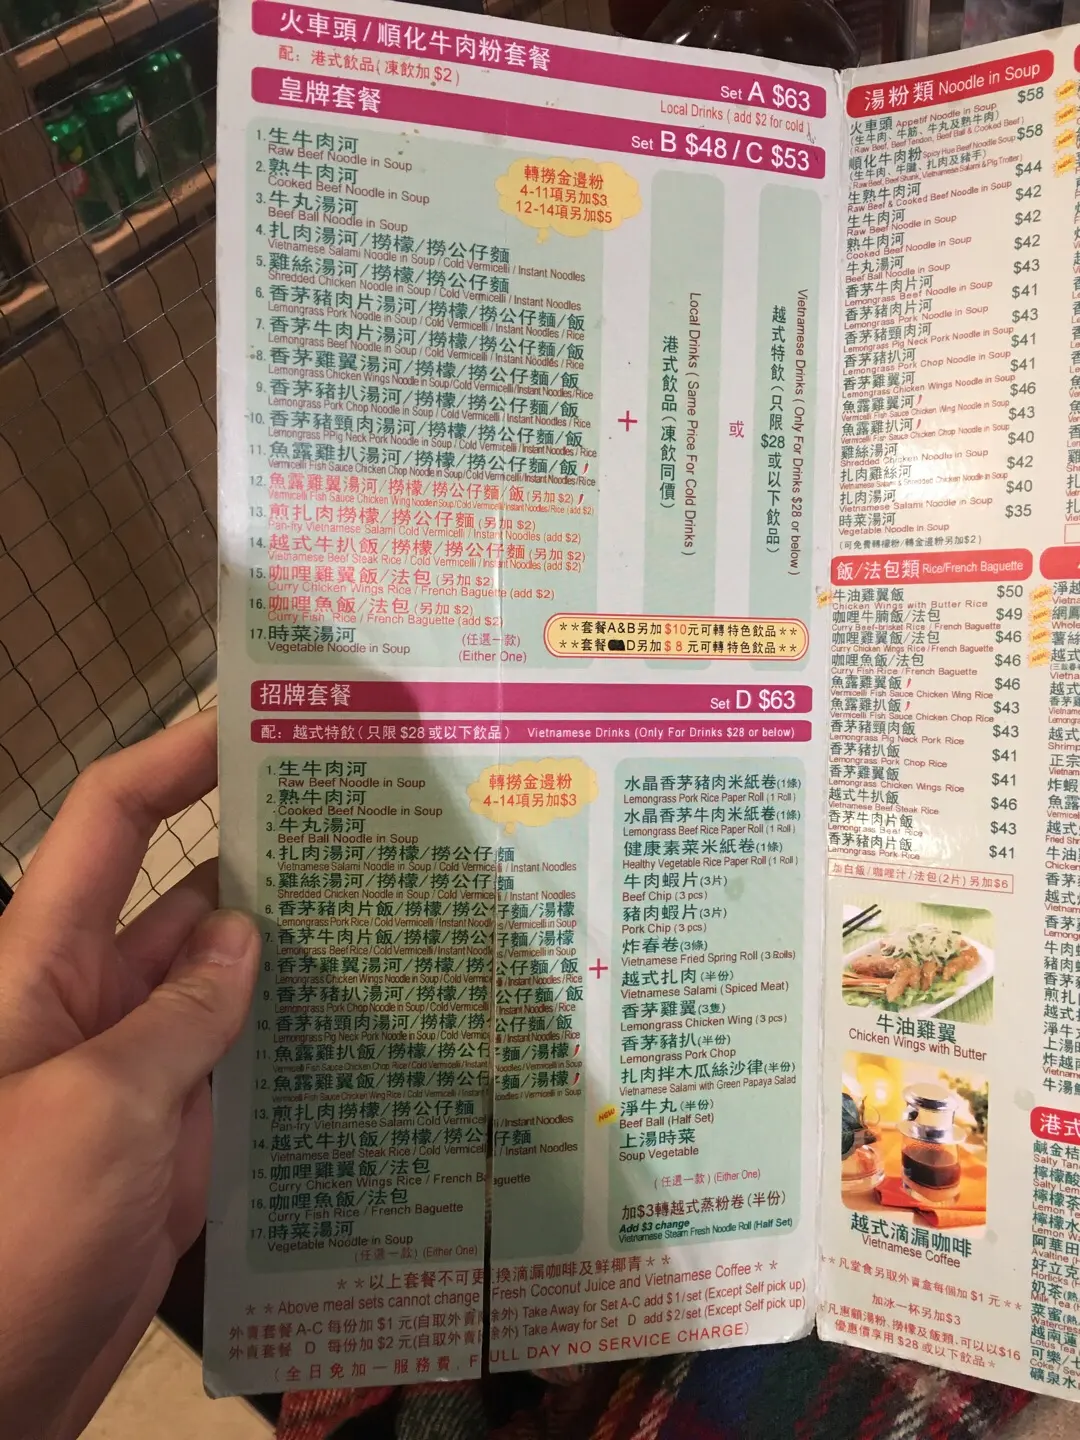 火車頭/順化牛肉粉套餐
Set A $63
配：港式飲品(凍飲加 $2)
Local Drinks ( add $2 for cold )
皇牌套餐
Set B $48 / C $53
1. 生牛肉河
Raw Beef Noodle in Soup
2. 熟牛肉河
Cooked Beef Noodle in Soup
3. 牛丸湯河
Beef Ball Noodle in Soup
4. 扎肉湯河/撈檬/撈公仔麵
Vietnamese Salami Noodle in Soup / Cold Vermicelli / Instant Noodles
5. 雞絲湯河/撈檬/撈公仔麵
Shredded Chicken Noodle in Soup / Cold Vermicelli / Instant Noodles
6. 香茅豬肉片湯河/撈檬/撈公仔麵/飯
Lemongrass Pork Noodle in Soup / Cold Vermicelli / Instant Noodles / Rice
7. 香茅牛肉片湯河/撈檬/撈公仔麵/飯
Lemongrass Beef Noodle in Soup / Cold Vermicelli / Instant Noodles / Rice
8. 香茅雞翼湯河/撈檬/撈公仔麵/飯
Lemongrass Chicken Wings Noodle in Soup/Cold Vermicelli/Instant Noodles/Rice
9. 香茅豬扒湯河/撈檬/撈公仔麵/飯
Lemongrass Pork Chop Noodle in Soup / Cold Vermicelli / Instant Noodles / Rice
10. 香茅豬頸肉湯河/撈檬/撈公仔麵/飯
Lemongrass PPig Neck Pork Noodle in Soup / Cold Vermicelli / Instant Noodles / Rice
11. 魚露雞扒湯河/撈檬/撈公仔麵/飯
Vermicelli Fish Sauce Chicken Chop Noodle in Soup/Cold Vermicelli/Instant Noodles/Rice
12. 魚露雞翼湯河/撈檬/撈公仔麵/飯(另加 $2)
Vermicelli Fish Sauce Chicken Wing Noodle in Soup/Cold Vermicelli/Instant Noodles/Rice (add $2)
13. 煎扎肉撈檬/撈公仔麵 (另加 $2)
Pan-fry Vietnamese Salami Cold Vermicelli / Instant Noodles (add $2)
14. 越式牛扒飯/撈檬/撈公仔麵 (另加 $2)
Vietnamese Beef Steak Rice / Cold Vermicelli / Instant Noodles (add $2)
15. 咖喱雞翼飯/法包 (另加 $2)
Curry Chicken Wings Rice / French Baguette (add $2)
16. 咖喱魚飯/法包 (另加 $2)
Curry Fish Rice / French Baguette (add $2)
17. 時菜湯河
Vegetable Noodle in Soup
(任選一款)
(Either One)
轉撈金邊粉
4-11項另加$3
12-14項另加$5
+
港式飲品(凍飲同價)
Local Drinks ( Same Price For Cold Drinks )
或
越式特飲(只限 $28或以下飲品)
Vietnamese Drinks ( Only For Drinks $28 or below )
**套餐A&B另加 $10元可轉特色飲品**
**套餐 D另加 $ 8 元可轉特色飲品**
招牌套餐
Set D $63
配：越式特飲(只限 $28 或以下飲品) Vietnamese Drinks (Only For Drinks $28 or below)
1. 生牛肉河
Raw Beef Noodle in Soup
2. 熟牛肉河
Cooked Beef Noodle in Soup
3. 牛丸湯河
Beef Ball Noodle in Soup
4. 扎肉湯河/撈檬/撈公仔麵
Vietnamese Salami Noodle in Soup / Cold Vermicelli / Instant Noodles
5. 雞絲湯河/撈檬/撈公仔麵
Shredded Chicken Noodle in Soup / Cold Vermicelli / Instant Noodles
6. 香茅豬肉片飯/撈檬/撈公仔麵/湯檬
Lemongrass Pork Rice/Cold Vermicelli/Instant Noodles/Vermicelli in Soup
7. 香茅牛肉片飯/撈檬/撈公仔麵/湯檬
Lemongrass Beef Rice/Cold Vermicelli/Instant Noodles/Vermicelli in Soup
8. 香茅雞翼湯河/撈檬/撈公仔麵/飯
Lemongrass Chicken Wings Noodle in Soup/Cold Vermicelli/Instant Noodles/Rice
9. 香茅豬扒湯河/撈檬/撈公仔麵/飯
Lemongrass Pork Chop Noodle in Soup / Cold Vermicelli / Instant Noodles/Rice
10. 香茅豬頸肉湯河/撈檬/撈公仔麵/飯
Lemongrass Pig Neck Pork Noodle in Soup / Cold Vermicelli / Instant Noodles/Rice
11. 魚露雞扒飯/撈檬/撈公仔麵/湯檬
Vermicelli Fish Sauce Chicken Chop Rice / Cold Vermicelli / Instant Noodles / Vermicelli in Soup
12. 魚露雞翼飯/撈檬/撈公仔麵/湯檬
Vermicelli Fish Sauce Chicken Wing Rice / Cold Vermicelli / Instant Noodles / Vermicelli in Soup
13. 煎扎肉撈檬/撈公仔麵
Pan-fry Vietnamese Salami Cold Vermicelli / Instant Noodles
14. 越式牛扒飯/撈檬/撈公仔麵
Vietnamese Beef Steak Rice / Cold Vermicelli / Instant Noodles
15. 咖喱雞翼飯/法包
Curry Chicken Wings Rice / French Baguette
16. 咖喱魚飯/法包
Curry Fish Rice / French Baguette
17. 時菜湯河
Vegetable Noodle in Soup
(任選一款) (Either One)
轉撈金邊粉
4-14項另加$3
+
水晶香茅豬肉米紙卷(1條)
Lemongrass Pork Rice Paper Roll (1 Roll)
水晶香茅牛肉米紙卷(1條)
Lemongrass Beef Rice Paper Roll (1 Roll)
健康素菜米紙卷(1條)
Healthy Vegetable Rice Paper Roll (1 Roll)
牛肉蝦片(3片)
Beef Chip (3 pcs)
豬肉蝦片(3片)
Pork Chip (3 pcs)
炸春卷(3條)
Vietnamese Fried Spring Roll (3 Rolls)
越式扎肉(半份)
Vietnamese Salami (Spiced Meat)
香茅雞翼(3隻)
Lemongrass Chicken Wing (3 pcs)
香茅豬扒(半份)
Lemongrass Pork Chop
扎肉拌木瓜絲沙律(半份)
Vietnamese Salami with Green Papaya Salad
NEW
淨牛丸(半份)
Beef Ball (Half Set)
上湯時菜
Soup Vegetable
(任選一款) (Either One)
加$3轉越式蒸粉卷(半份)
Add $3 change
Vietnamese Steam Fresh Noodle Roll (Half Set)
**以上套餐不可更換滴漏咖啡及鮮椰青**
**Above meal sets cannot change Fresh Coconut Juice and Vietnamese Coffee**
外賣套餐 A-C 每份加 $1 元(自取外賣除外) Take Away for Set A-C add $1/set (Except Self pick up)
外賣套餐 D 每份加 $2 元(自取外賣除外) Take Away for Set D add $2/set (Except Self pick up)
(全日免加一服務費, FULL DAY NO SERVICE CHARGE)
湯粉類 Noodle in Soup
火車頭 Appetif Noodle in Soup $58
(生牛肉、牛筋、牛丸及熟牛肉)
(Raw Beef, Beef Tendon, Beef Ball & Cooked Beef)
順化牛肉粉 Spicy Hue Beef Noodle Soup $58
(生牛肉、牛腱、扎肉及豬手)
(Raw Beef, Beef Shank, Vietnamese Salami & Pig Trotter)
生熟牛肉河 $44
Raw Beef & Cooked Beef Noodle in Soup
生牛肉河 $42
Raw Beef Noodle in Soup
熟牛肉河 $42
Cooked Beef Noodle in Soup
牛丸湯河 $42
Beef Ball Noodle in Soup
香茅牛肉片河 $43
Lemongrass Beef Noodle in Soup
香茅豬肉片河 $41
Lemongrass Pork Noodle in Soup
香茅豬頸肉河 $43
Lemongrass Pig Neck Pork Noodle in Soup
香茅豬扒河 $41
Lemongrass Pork Chop Noodle in Soup
香茅雞翼河 $41
Lemongrass Chicken Wings Noodle in Soup
魚露雞翼河 $46
Vermicelli Fish Sauce Chicken Wing Noodle in Soup
魚露雞扒河 $43
Vermicelli Fish Sauce Chicken Chop Noodle in Soup
雞絲湯河 $40
Shredded Chicken Noodle in Soup
扎肉雞絲河 $42
Vietnamese Salami & Shredded Chicken Noodle in Soup
扎肉湯河 $40
Vietnamese Salami Noodle in Soup
時菜湯河 $35
Vegetable Noodle in Soup
(可免費轉檬粉/轉金邊粉另加$2)
飯/法包類 Rice/French Baguette
牛油雞翼飯 $50
Chicken Wings with Butter Rice
咖喱牛腩飯/法包 $49
Curry Beef-brisket Rice / French Baguette
咖喱雞翼飯/法包 $46
Curry Chicken Wings Rice / French Baguette
咖喱魚飯/法包 $46
Curry Fish Rice / French Baguette
魚露雞翼飯 $46
Vermicelli Fish Sauce Chicken Wing Rice
魚露雞扒飯 $43
Vermicelli Fish Sauce Chicken Chop Rice
香茅豬頸肉飯 $43
Lemongrass Pig Neck Pork Rice
香茅豬扒飯 $41
Lemongrass Pork Chop Rice
香茅雞翼飯 $41
Lemongrass Chicken Wings Rice
越式牛扒飯 $46
Vietnamese Beef Steak Rice
香茅牛肉片飯 $43
Lemongrass Beef Rice
香茅豬肉片飯 $41
Lemongrass Pork Rice
加白飯/咖喱汁/法包(2片)另加$6
牛油雞翼
Chicken Wings with Butter
越式滴漏咖啡
Vietnamese Coffee
**凡堂食另取外賣盒每個加 $1 元**
加冰一杯另加$3
*凡惠顧湯粉, 撈檬及飯類, 可以以$16
優惠價享用 $28 或以下飲品*
港式
鹹金桔
Salty Tan
檸檬酸
Salty Lem
檸檬茶
Lemon Te
檸檬水
Lemon Wa
阿華田
Avaltine (H
好立克
Horlicks (H
奶茶(熱
Milk Tea (H
菜蜜(熱
Watercress
越南蓮
Lotus Tea
可樂/七
Coke / Seve
礦泉水